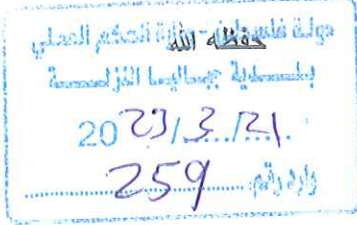 دولة فلسطين - وزارة الحكم المحلي
حفظه الله
بلـــدية جباليا النزلـــة
2023/3/21
وارد رقم: 259